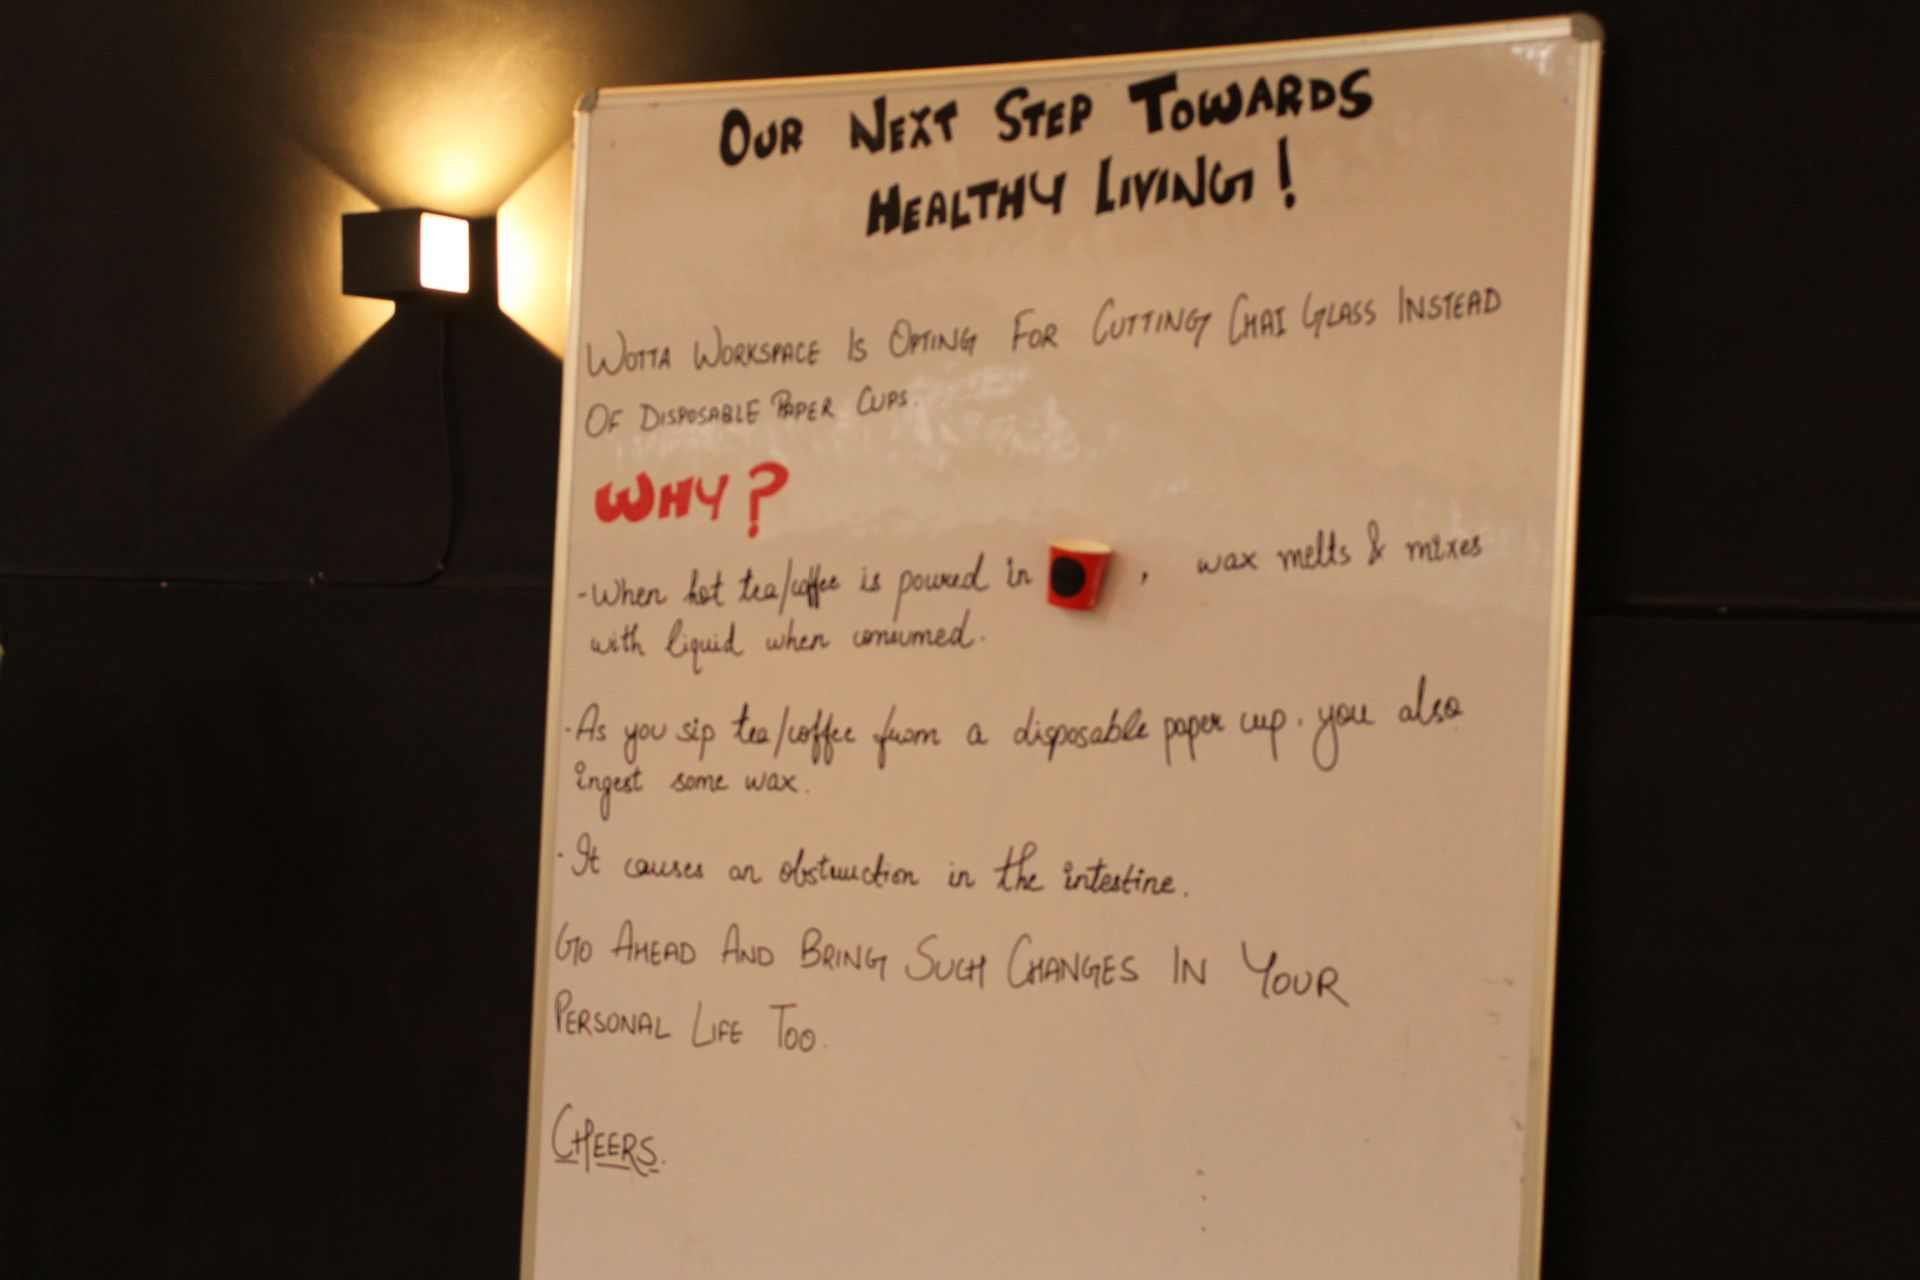 OUR NEXT STEP TOWARDS
HEALTHY LIVING!
WOTTA WORKSPACE IS OPTING FOR CUTTING CHAI GLASS INSTEAD
OF DISPOSABLE PAPER CUPS.
WHY?
- When hot tea/coffee is poured in , wax melts & mixes
with liquid when consumed.
· As you sip tea/coffee from a disposable paper cup. you also
ingest some wax.
· It causes an obstruction in the intestine.
GO AHEAD AND BRING SUCH CHANGES IN YOUR
PERSONAL LIFE TOO.
CHEERS.